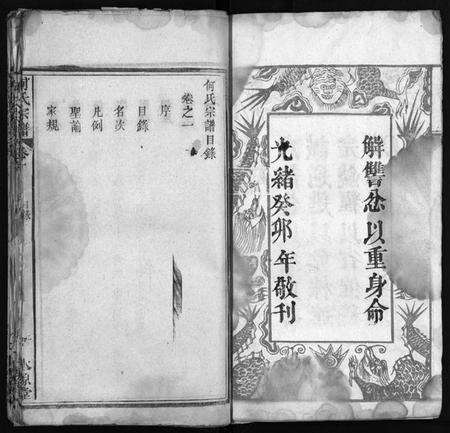 解讐忿以重身命
光緒癸卯年敬刊
何氏宗譜目錄
卷之一
序
目錄
名次
凡例
聖諭
家規
何氏宗譜